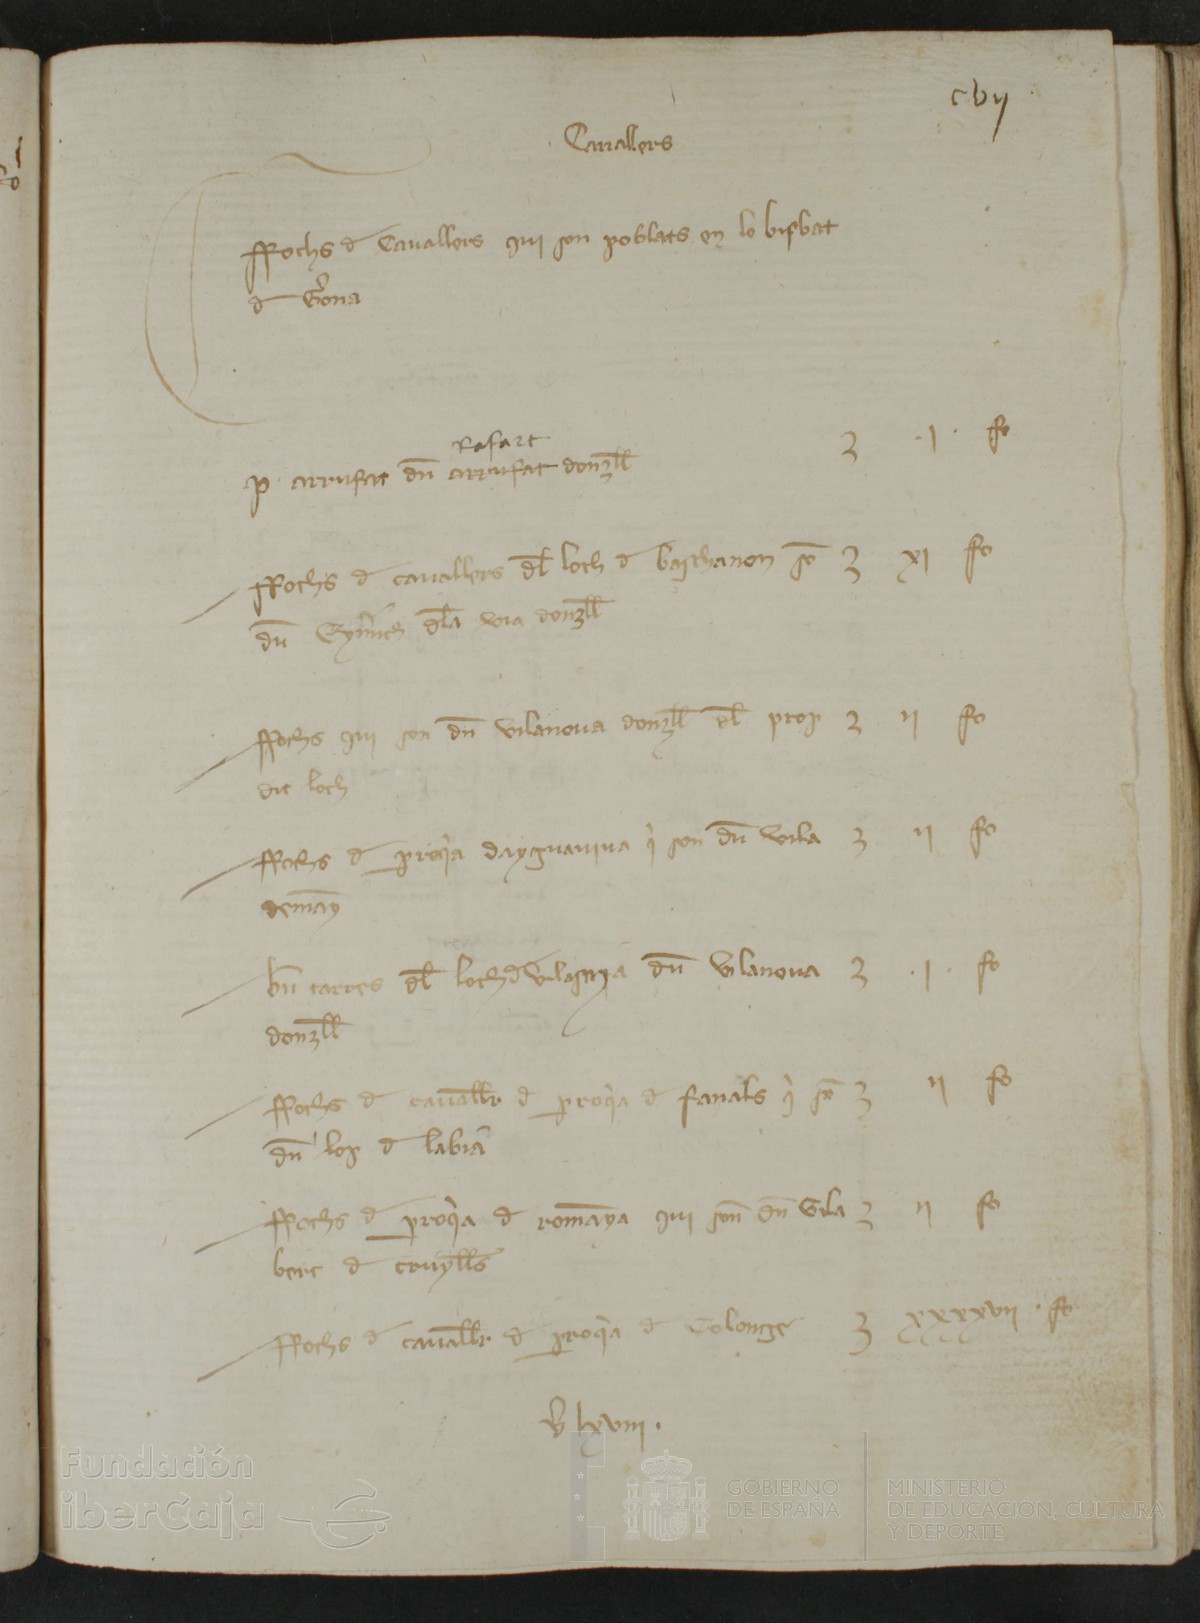 cvij
Cavallers
Ffochs d Cavallers qui son poblats en lo bisbat
d Gerona
Rafart
P. arrufat dn arrufat donzell
3 .I. fo
Ffochs d cavallers dl loch d so 3 XI fo
dn dla via donzell
Ffochs qui son dn vilanova donzell dl prop 3 II fo
dit loch
Ffochs d proqia dayguaviva qi son dn vila 3 II fo
demany
bn carres dl loch d dn vilanova 3 .I. fo
donzell
Ffochs d cavallr d proqia d fanals qi so 3 II fo
dn lop d labia
Ffochs d proqia d romanya qui son dn Gila 3 II fo
bert d cruylles
Ffochs d cavallr d proqia d Colonge 3 XXXXVII . fo
lxviii .
Fundación
iberCaja
GOBIERNO
DE ESPAÑA
MINISTERIO
DE EDUCACIÓN, CULTURA
Y DEPORTE